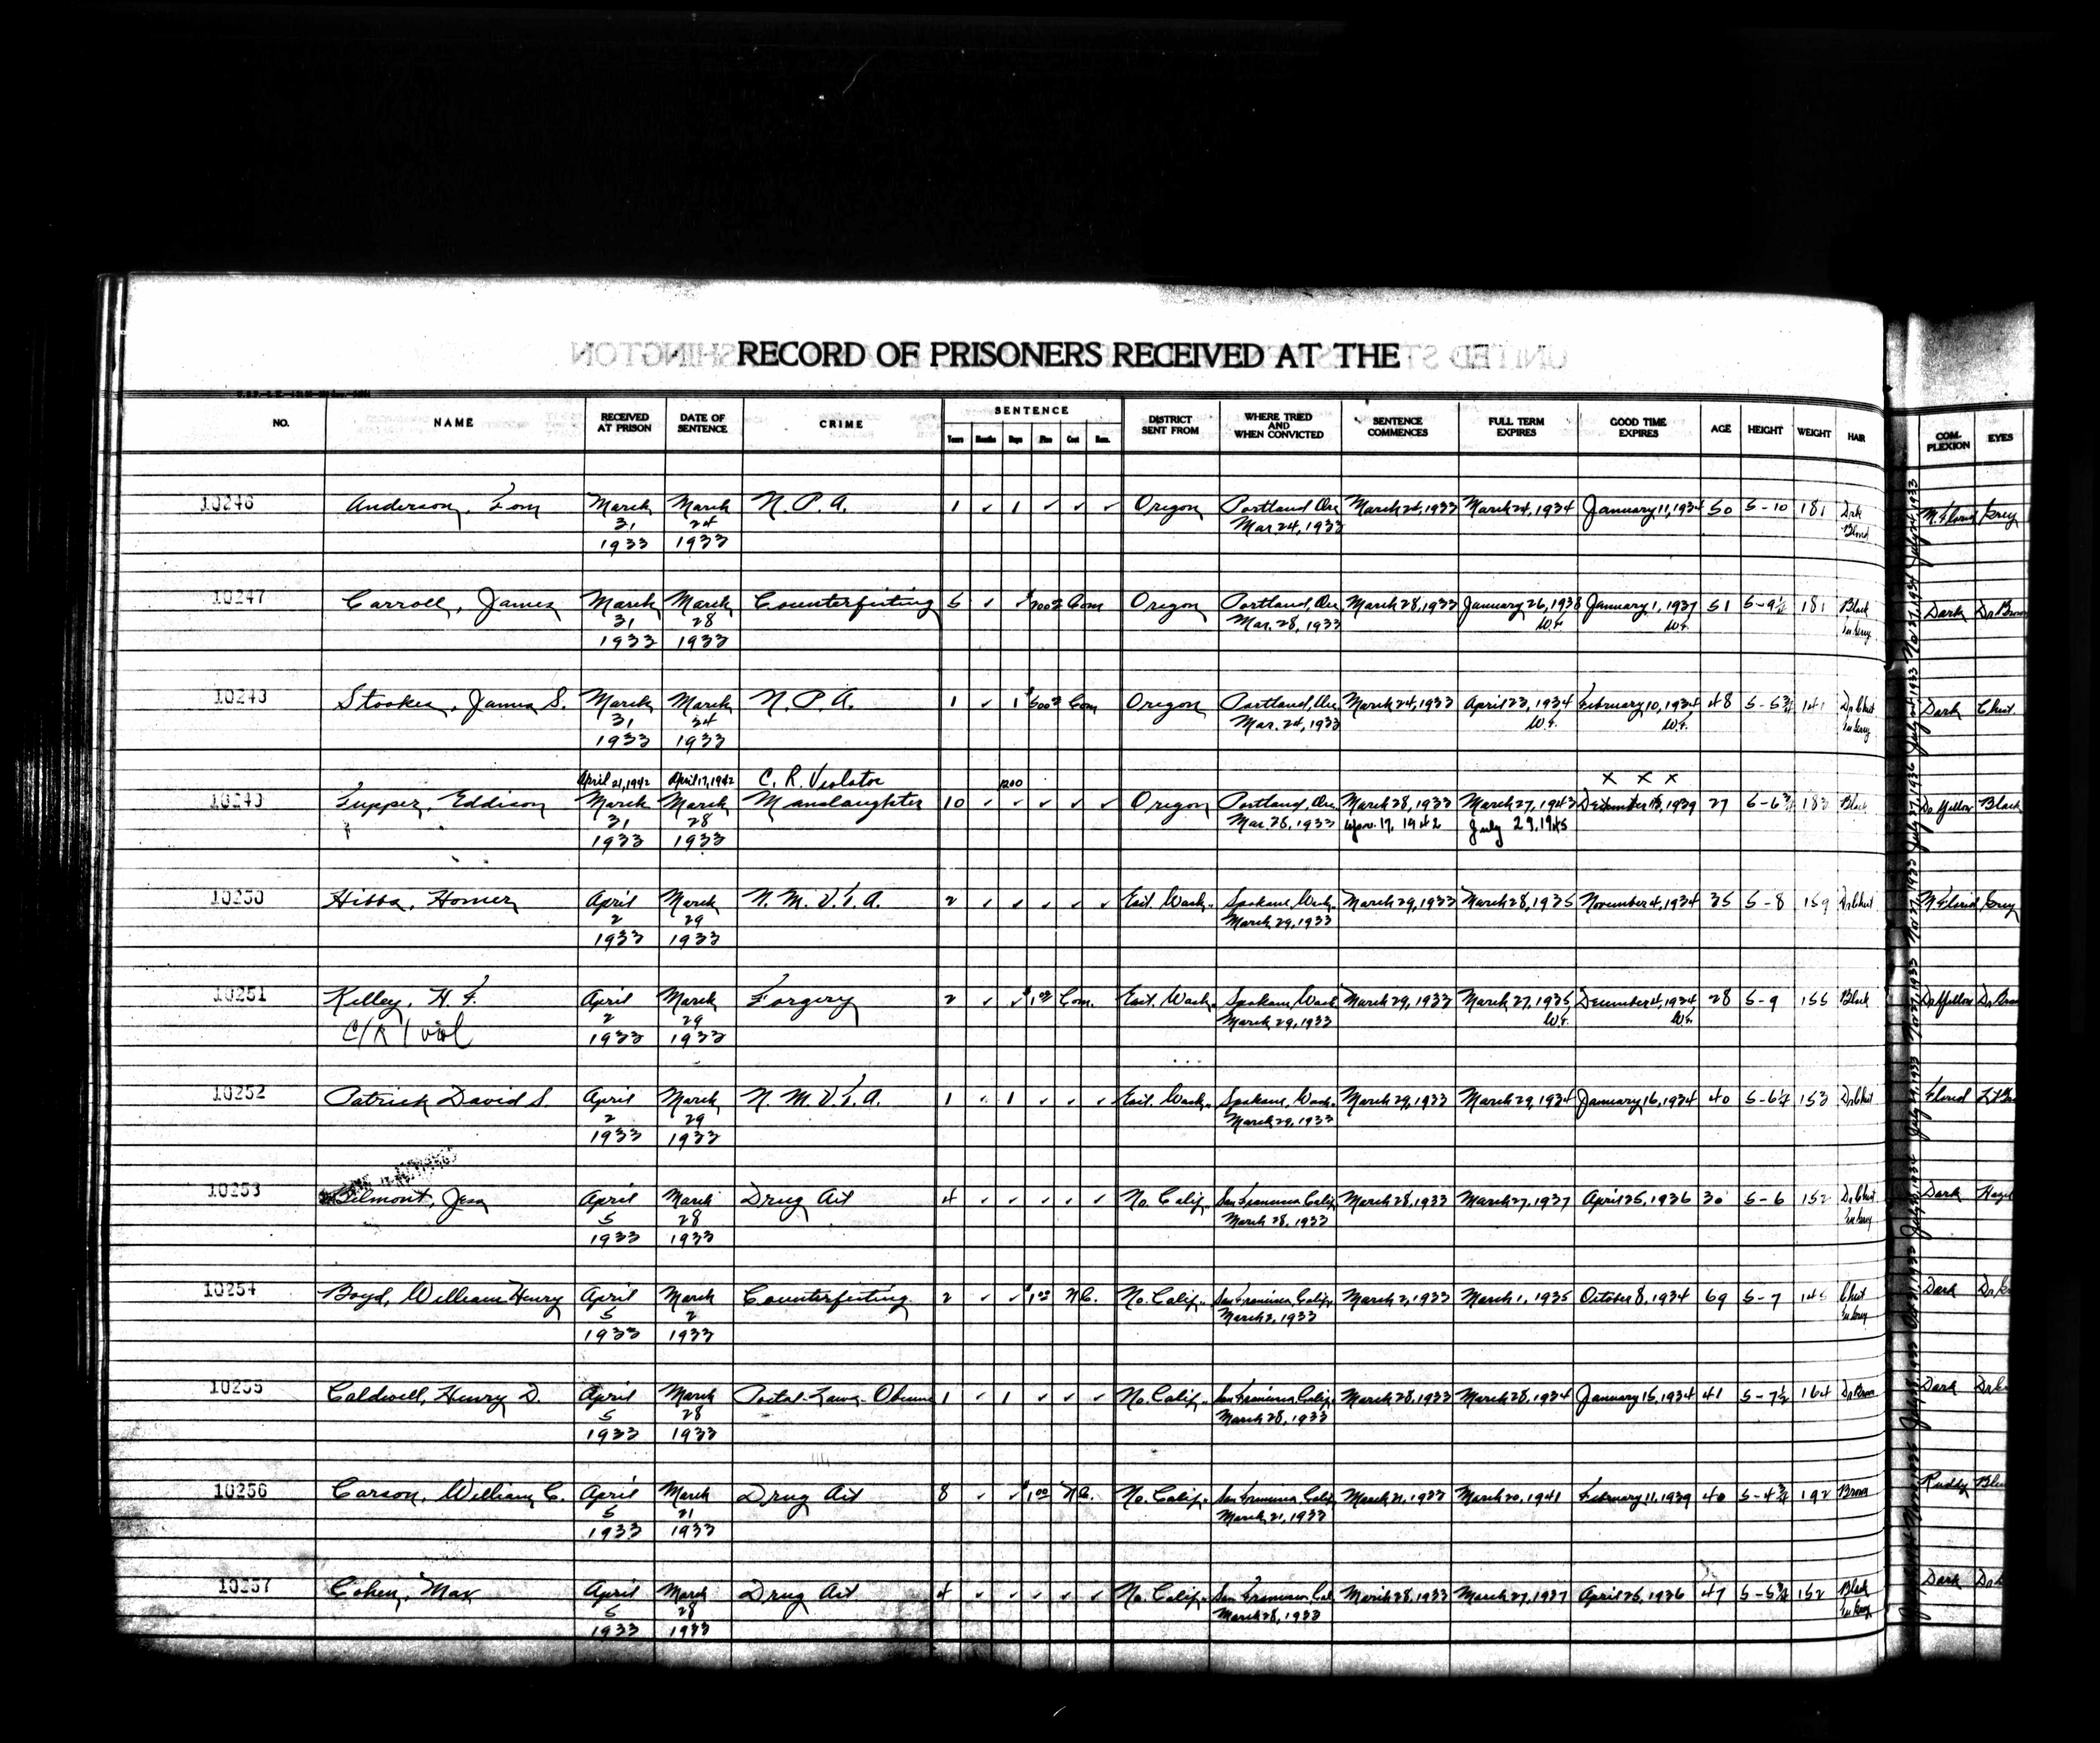 RECORD OF PRISONERS RECEIVED AT THE
NO. NAME RECEIVED AT PRISON DATE OF SENTENCE CRIME SENTENCE Years Months Days Fine Cost Rem. DISTRICT SENT FROM WHERE TRIED AND WHEN CONVICTED SENTENCE COMMENCES FULL TERM EXPIRES GOOD TIME EXPIRES AGE HEIGHT WEIGHT HAIR COM-PLEXION EYES
10246 Anderson, Tom March March N. P. A. 1 ✓ 1 ✓ ✓ ✓ Oregon Portland, Ore March 24, 1933 March 24, 1934 January 11, 1934 50 5-10 181 Drk
31, 24 Mar. 24, 1933 Blond
1933 1933
10247 Carroll, James March March Counterfeiting 5 ✓ Com Oregon Portland, Ore March 28, 1933 January 26, 1938 January 1, 1937 51 5-9½ 181 Black Dark
31, 28 Mar. 28, 1933
1933 1933
Stookes, James S. March March N. P. A. 1 ✓ 1 Com Oregon Portland, Ore March 24, 1933 April 23, 1934 February 10, 1934 48 Dark Chest
31, 24 Mar. 24, 1933
1933 1933
April 21, 1942 April 17, 1942 C. R. Violator 1200 X X X
Tupper, Eddison March March Manslaughter 10 ✓ ✓ ✓ ✓ ✓ Oregon Portland, Ore March 28, 1933 March 27, 1943 27 183 Black Black
31, 28 Mar. 28, 1933 July 29, 1945
1933 1933
10250 Hibbs, Homer April March N. M. V. T. A. 2 ✓ ✓ ✓ ✓ ✓ East. Wash. Spokane, Wash. March 29, 1933 March 28, 1935 November 4, 1934 35 5-8 159
2 29 March 29, 1933
1933 1933
10251 Kelley, H. F. April March Forgery 2 ✓ ✓ Com. East. Wash. Spokane, Wash March 29, 1933 March 27, 1935 December 4, 1934 28 5-9 155 Black
C/R/viol 2 29 March 29, 1933
1933 1933
10252 Patrick David S. April March N. M. V. T. A. 1 ✓ 1 ✓ ✓ ✓ East. Wash. Spokane, Wash. March 29, 1933 March 29, 1934 January 16, 1934 40 153
2 29 March 29, 1933
1933 1933
10253 Belmont, Jess April March Drug Act 4 ✓ ✓ ✓ ✓ ✓ No. Calif. San Francisco, Calif. March 28, 1933 March 27, 1937 April 25, 1936 30 5-6 152 Dark Hazel
5 28 March 28, 1933
1933 1933
10254 Boyd, William Henry April March Counterfeiting 2 ✓ ✓ N.C. No. Calif. San Francisco, Calif. March 2, 1933 March 1, 1935 October 8, 1934 69 5-7 Chest Dark
5 2 March 2, 1933
1933 1933
10255 Caldwell, Henry D. April March Postal Laws-Obscene 1 ✓ 1 ✓ ✓ ✓ No. Calif. San Francisco, Calif. March 28, 1933 March 28, 1934 January 15, 1934 41 5-7½ 164 Dark
5 28 March 28, 1933
1933 1933
10256 Carson, William C. April March Drug Act 8 ✓ ✓ N.C. No. Calif. San Francisco, Calif. March 21, 1933 March 20, 1941 February 11, 1939 40 5-4¾ 192 Brown Ruddy Blue
5 21 March 21, 1933
1933 1933
10257 Cohen, Max April March Drug Act 4 ✓ ✓ ✓ ✓ ✓ No. Calif. San Francisco, Cal. March 28, 1933 March 27, 1937 April 25, 1936 47 152 Black Dark
5 28 March 28, 1933
1933 1933